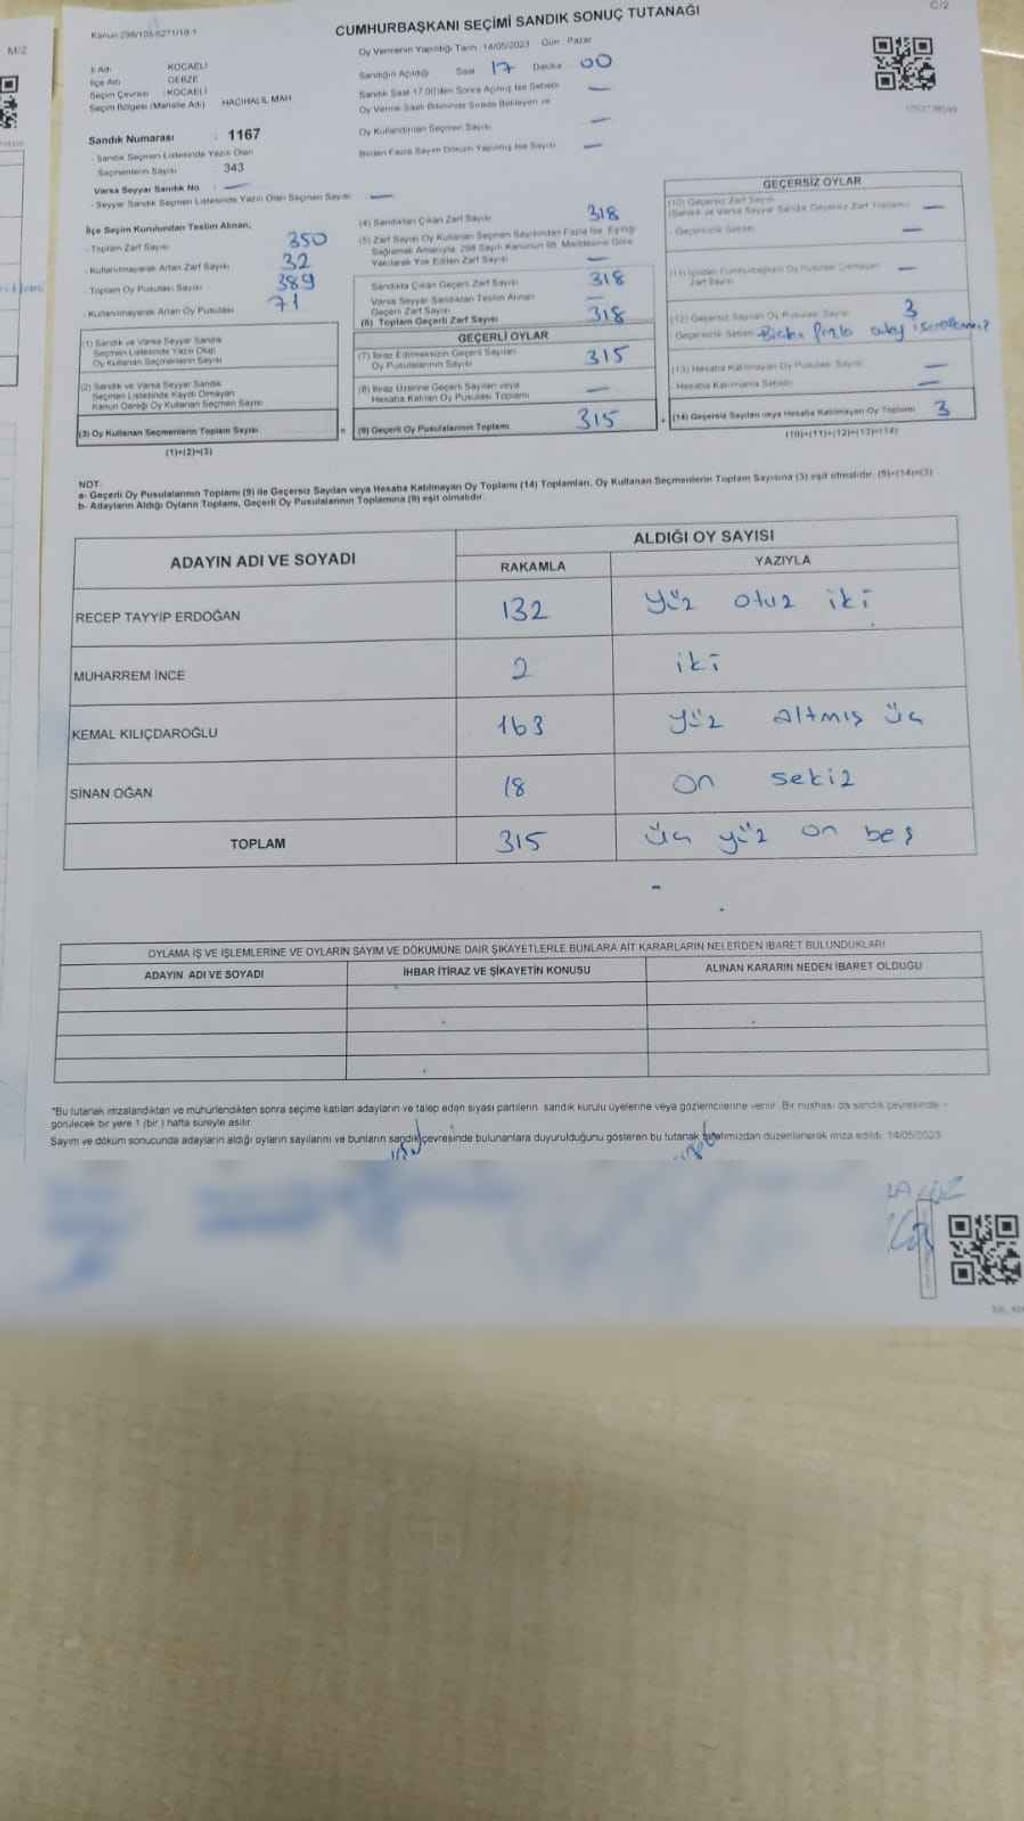 C/2
M/2
CUMHURBAŞKANI SEÇİMİ SANDIK SONUÇ TUTANAĞI
Oy Vermenin Yapıldığı Tarih 14/05/2023 Gün Pazar
İl Adı KOCAELİ
İlçe Adı GEBZE
Seçim Çevresi KOCAELİ
Seçim Bölgesi (Mahalle Adı) HACIHALİL MAH
Sandığın Açıldığı Saat 17 Dakika 00
Sandık Numarası : 1167
Sandık Seçmen Listesinde Yazılı Olan
Seçmenlerin Sayısı 343
Varsa Seyyar Sandık No : —
- Seyyar Sandık Seçmen Listesinde Yazılı Olan Seçmen Sayısı —
İlçe Seçim Kurulundan Teslim Alınan;
- Toplam Zarf Sayısı 350
- Kullanılmayarak Artan Zarf Sayısı 32
- Toplam Oy Pusulası Sayısı 389
- Kullanılmayarak Artan Oy Pusulası 71
(1) Sandık ve Varsa Seyyar Sandık
Seçmen Listesinde Yazılı Olup
Oy Kullanan Seçmenlerin Sayısı
(2) Sandık ve Varsa Seyyar Sandık
Seçmen Listesinde Kayıtlı Olmayan
Kanun Gereği Oy Kullanan Seçmen Sayısı
(3) Oy Kullanan Seçmenlerin Toplam Sayısı
(1)+(2)=(3)
(4) Sandıktan Çıkan Zarf Sayısı 318
Sandıkta Çıkan Geçerli Zarf Sayısı 318
Varsa Seyyar Sandıktan Teslim Alınan
Geçerli Zarf Sayısı —
(6) Toplam Geçerli Zarf Sayısı 318
GEÇERLİ OYLAR
(7) İtiraz Edilmeksizin Geçerli Sayılan
Oy Pusulalarının Sayısı 315
(8) İtiraz Üzerine Geçerli Sayılan veya
Hesaba Katılan Oy Pusulası Toplamı —
(9) Geçerli Oy Pusulalarının Toplamı 315
GEÇERSİZ OYLAR
(12) Geçersiz Sayılan Oy Pusulası Sayısı 3
(13) Hesaba Katılmayan Oy Pusulası Sayısı —
Hesaba Katılmama Sebebi —
(14) Geçersiz Sayılan veya Hesaba Katılmayan Oy Toplamı 3
(10)+(11)+(12)+(13)=(14)
NOT:
a- Geçerli Oy Pusulalarının Toplamı (9) ile Geçersiz Sayılan veya Hesaba Katılmayan Oy Toplamı (14) Toplamları, Oy Kullanan Seçmenlerin Toplam Sayısına (3) eşit olmalıdır. (9)+(14)=(3)
b- Adayların Aldığı Oyların Toplamı, Geçerli Oy Pusulalarının Toplamına (9) eşit olmalıdır.
ADAYIN ADI VE SOYADI
ALDIĞI OY SAYISI
RAKAMLA YAZIYLA
RECEP TAYYİP ERDOĞAN 132 yüz otuz iki
MUHARREM İNCE 2 iki
KEMAL KILIÇDAROĞLU 163 yüz altmış üç
SİNAN OĞAN 18 on sekiz
TOPLAM 315 üç yüz on beş
OYLAMA İŞ VE İŞLEMLERİNE VE OYLARIN SAYIM VE DÖKÜMÜNE DAİR ŞİKAYETLERLE BUNLARA AİT KARARLARIN NELERDEN İBARET BULUNDUKLARI
ADAYIN ADI VE SOYADI İHBAR İTİRAZ VE ŞİKAYETİN KONUSU ALINAN KARARIN NEDEN İBARET OLDUĞU
*Bu tutanak imzalandıktan ve mühürlendikten sonra seçime katılan adayların ve talep eden siyasi partilerin sandık kurulu üyelerine veya gözlemcilerine verilir. Bir nüshası da sandık çevresinde
görülecek bir yere 1 (bir) hafta süreyle asılır.
Sayım ve döküm sonucunda adayların aldığı oyların sayılarını ve bunların sandık çevresinde bulunanlara duyurulduğunu gösteren bu tutanak tarafımızdan düzenlenerek imza edildi. 14/05/2023